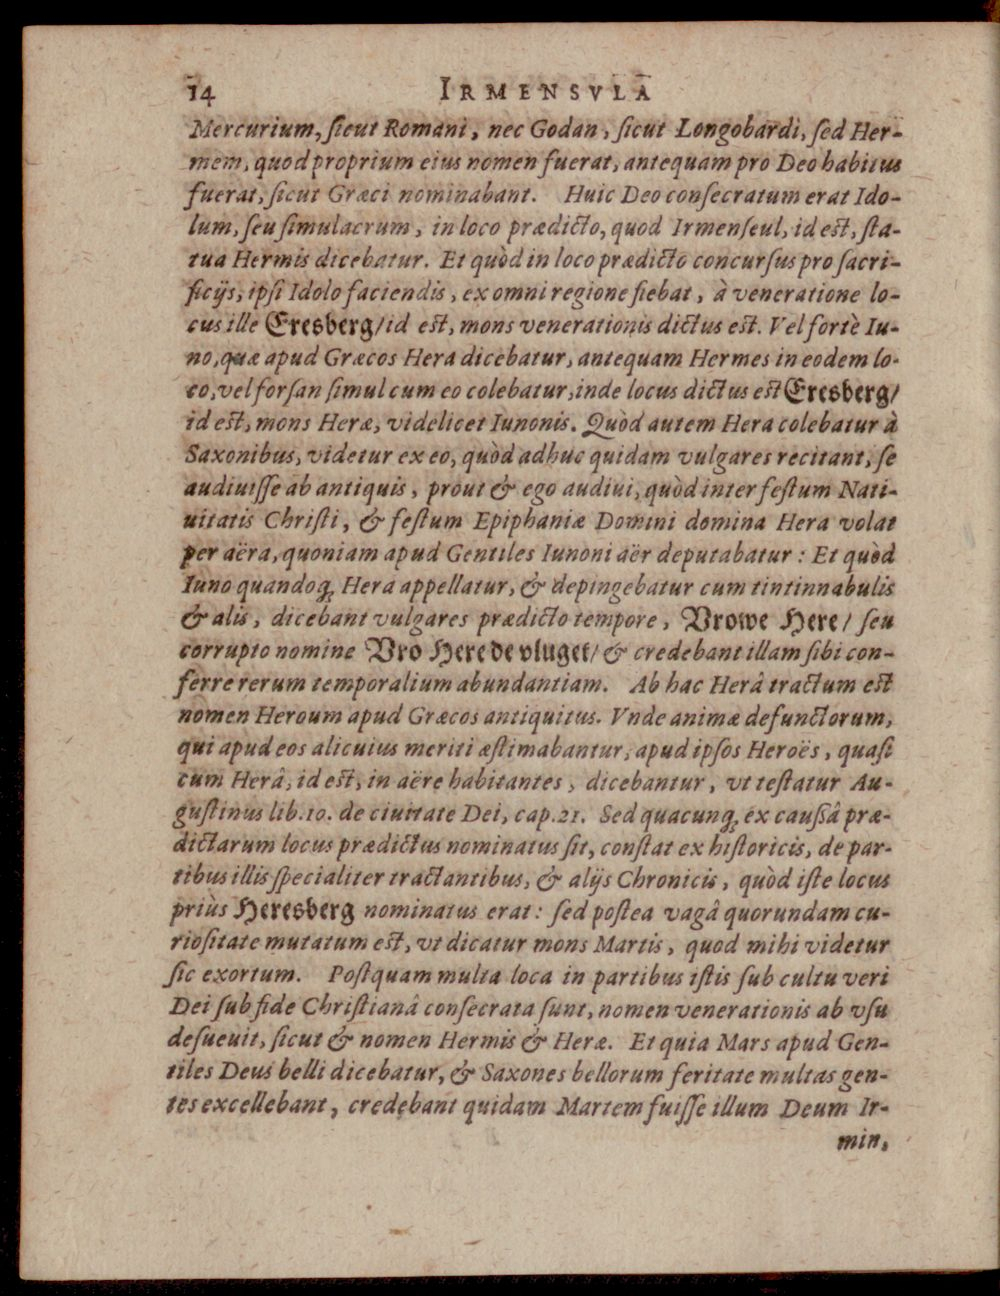 14 IRMENSVLA
Mercurium, ſicut Romani, nec Godan, ſicut Longobardi, ſed Her-
mem, quod proprium eius nomen fuerat, antequam pro Deo habitus
fuerat, ſicut Græci nominabant. Huic Deo conſecratum erat Ido-
lum, ſeu ſimulacrum, in loco prædicto, quod Irmenſeul, id eſt, ſta-
tua Hermis dicebatur. Et quòd in loco prædicto concurſus pro ſacri-
ficijs, ipſi Idolo faciendis, ex omni regione fiebat, à veneratione lo-
cus ille Eresberg/ id eſt, mons venerationis dictus eſt. Vel fortè Iu-
no, quæ apud Græcos Hera dicebatur, antequam Hermes in eodem lo-
co, vel forſan ſimul cum eo colebatur, inde locus dictus eſt Eresberg/
id eſt, mons Heræ, videlicet Iunonis. Quòd autem Hera colebatur à
Saxonibus, videtur ex eo, quòd adhuc quidam vulgares recitant, ſe
audiuiſſe ab antiquis, prout & ego audiui, quòd inter feſtum Nati-
uitatis Chriſti, & feſtum Epiphaniæ Domini domina Hera volat
per aëra, quoniam apud Gentiles Iunoni aër deputabatur : Et quòd
Iuno quandoq; Hera appellatur, & depingebatur cum tintinnabulis
& alis, dicebant vulgares prædicto tempore, Vrowe Here/ ſeu
corrupto nomine Vro Here de vluget/ & credebant illam ſibi con-
ferre rerum temporalium abundantiam. Ab hac Herâ tractum eſt
nomen Heroum apud Græcos antiquitus. Vnde animæ defunctorum,
qui apud eos alicuius meriti æſtimabantur, apud ipſos Heroës, quaſi
cum Herâ, id eſt, in aëre habitantes, dicebantur, vt teſtatur Au-
guſtinus lib. 10. de ciuitate Dei, cap. 21. Sed quacunq; ex cauſſâ præ-
dictarum locus prædictus nominatus ſit, conſtat ex hiſtoricis, de par-
tibus illis ſpecialiter tractantibus, & alijs Chronicis, quòd iſte locus
priùs Heresberg nominatus erat : ſed poſtea vagâ quorundam cu-
rioſitate mutatum eſt, vt dicatur mons Martis, quod mihi videtur
ſic exortum. Poſtquam multa loca in partibus iſtis ſub cultu veri
Dei ſub fide Chriſtianâ conſecrata ſunt, nomen venerationis ab vſu
deſueuit, ſicut & nomen Hermis & Heræ. Et quia Mars apud Gen-
tiles Deus belli dicebatur, & Saxones bellorum feritate multas gen-
tes excellebant, credebant quidam Martem fuiſſe illum Deum Ir-
min,